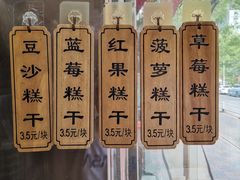 豆沙糕干
3.5元/块
蓝莓糕干
3.5元/块
红果糕干
3.5元/块
菠萝糕干
3.5元/块
草莓糕干
3.5元/块